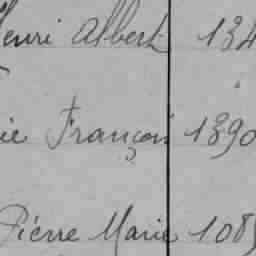 Henri Albert 134
ie François 1390
Pierre Marie 1089